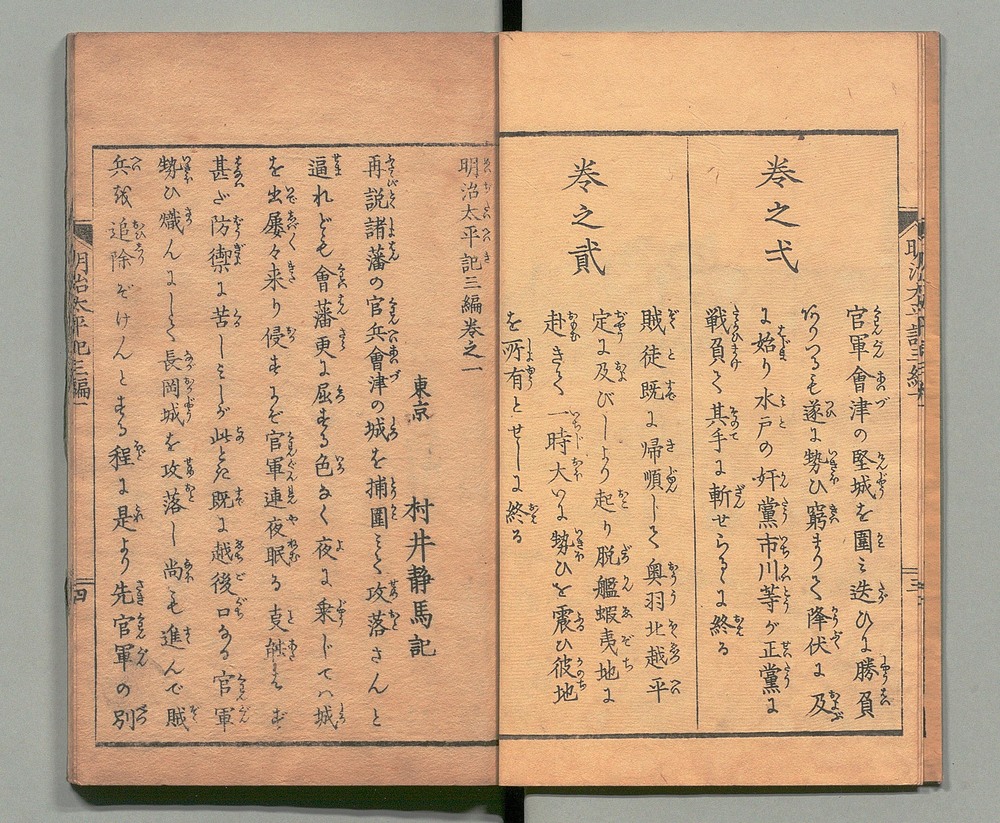 明治太平記三編
三
巻之弍
官軍會津の堅城を圍ミ迭ひに勝負
ありつるも遂に勢ひ窮まりて降伏に及
に始り水戸の奸黨市川等が正黨に
戦負て其手に斬せらるゝに終る
巻之貳
賊徒既に帰順して奥羽北越平
定に及びしより起り脱艦蝦夷地に
赴きて一時大いに勢ひを震ひ彼地
を所有とせしに終る
明治太平記三編巻之一
東京 村井静馬記
再説諸藩の官兵會津の城を捕圍ミて攻落さんと
逼れども會藩更に屈する色なく夜に乗じてハ城
を出屡々来り侵すにぞ官軍連夜眠る叓能ハず
甚だ防禦に苦しミしが此とき既に越後口なる官軍
勢ひ熾んにして長岡城を攻落し尚も進んで賊
兵を追除ぞけんとする程に是より先官軍の別
明治太平記三編一
四